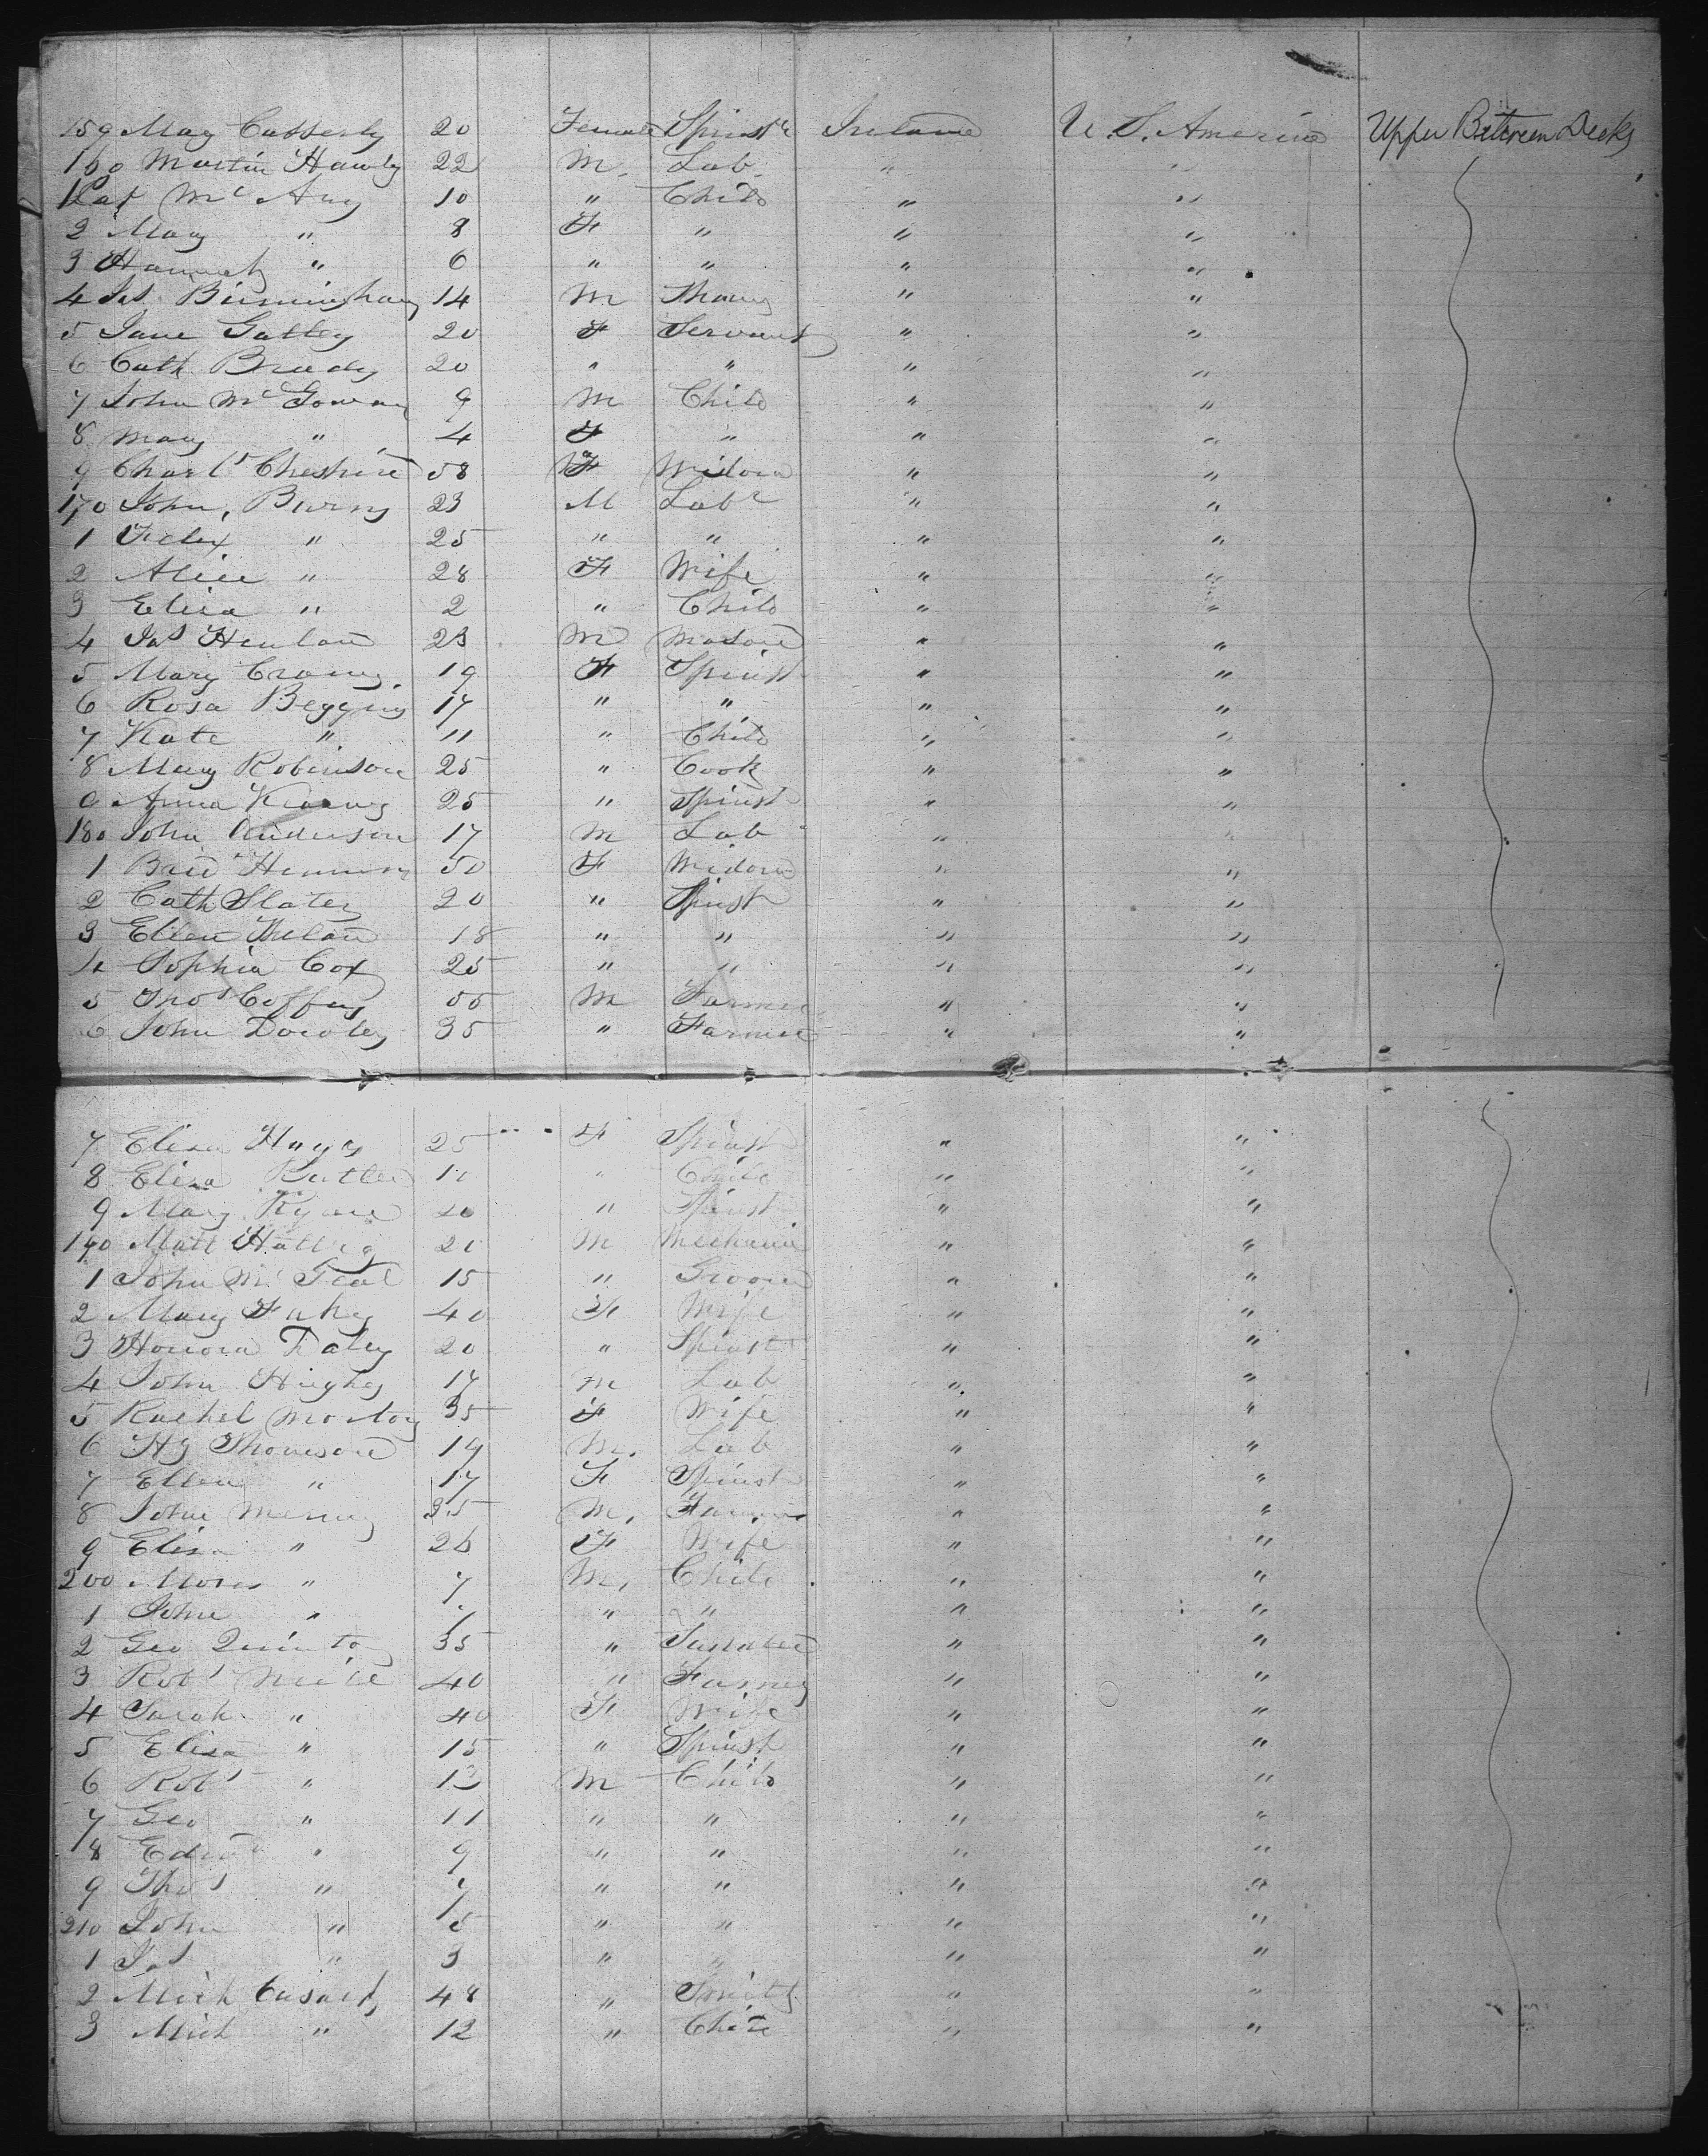 159 May Casserly 20 Female Spinstr Ireland U. S. America Upper Between Decks
160 Martin Hawly 22 M. Lab. " "
1 Pat McAny 10 " Child " "
2 Mary " 8 F " " "
3 Hannah " 6 " " " "
4 Jas Birmingham 14 M " "
5 Jane Gatley 20 F Servant " "
6 Cath Brady 20 " " " "
7 John McGowan 9 M Child " "
8 Mary " 4 F " " "
9 Charlt Cheshire 58 F Widow " "
170 John, Burns 23 M Labr " "
1 Felix " 25 " " " "
2 Alice " 28 F Wife " "
3 Eliza " 2 " Child " "
4 Jas Henlan 23 M Mason " "
5 Mary Crony 19 F Spinst " "
6 Rosa Beggins 17 " " " "
7 Kate " 11 " Child " "
8 Mary Robinson 25 " Cook " "
9 Anna Kearny 25 " Spinst " "
180 John Anderson 17 M Lab " "
1 Brid 50 F Widow " "
2 Cath Slatery 20 " Spinst " "
3 Ellen 18 " " " "
4 Sophia Cox 25 " " " "
5 Thos Coffey 55 M Farmer " "
6 John Dooley 35 " Farmer " "
7 Eliza Hayes 25 F Spinst " "
8 Eliza Butler " Child " "
9 Mary Ryan 20 " Spinst " "
190 Matt 21 M Mechanic " "
1 John Mc 15 " Groom " "
2 Mary Fahy 40 F Wife " "
3 Honora Daly 20 " Spinst " "
4 John Hughes 17 M Lab " "
5 Rachel Morton 35 F Wife " "
6 Hy Thomson 19 M. Lab " "
7 Ellen " 17 F Spinst " "
8 John 35 M. Farmer " "
9 Eliza " 26 F Wife " "
200 Moses " 7 M. Child " "
1 John " " " " "
2 Geo Quinton 35 " " "
3 Robt 40 " Farmer " "
4 Sarah " 40 F Wife " "
5 Eliza " 15 " Spinst " "
6 Robt " 12 M Child " "
7 Geo " 11 " " " "
8 Edwd " 9 " " " "
9 Thos " " " " "
210 John " 5 " " " "
1 Jas " 3 " " " "
2 Mich Cusack 48 " Smith " "
3 Mich " 12 " Child " "